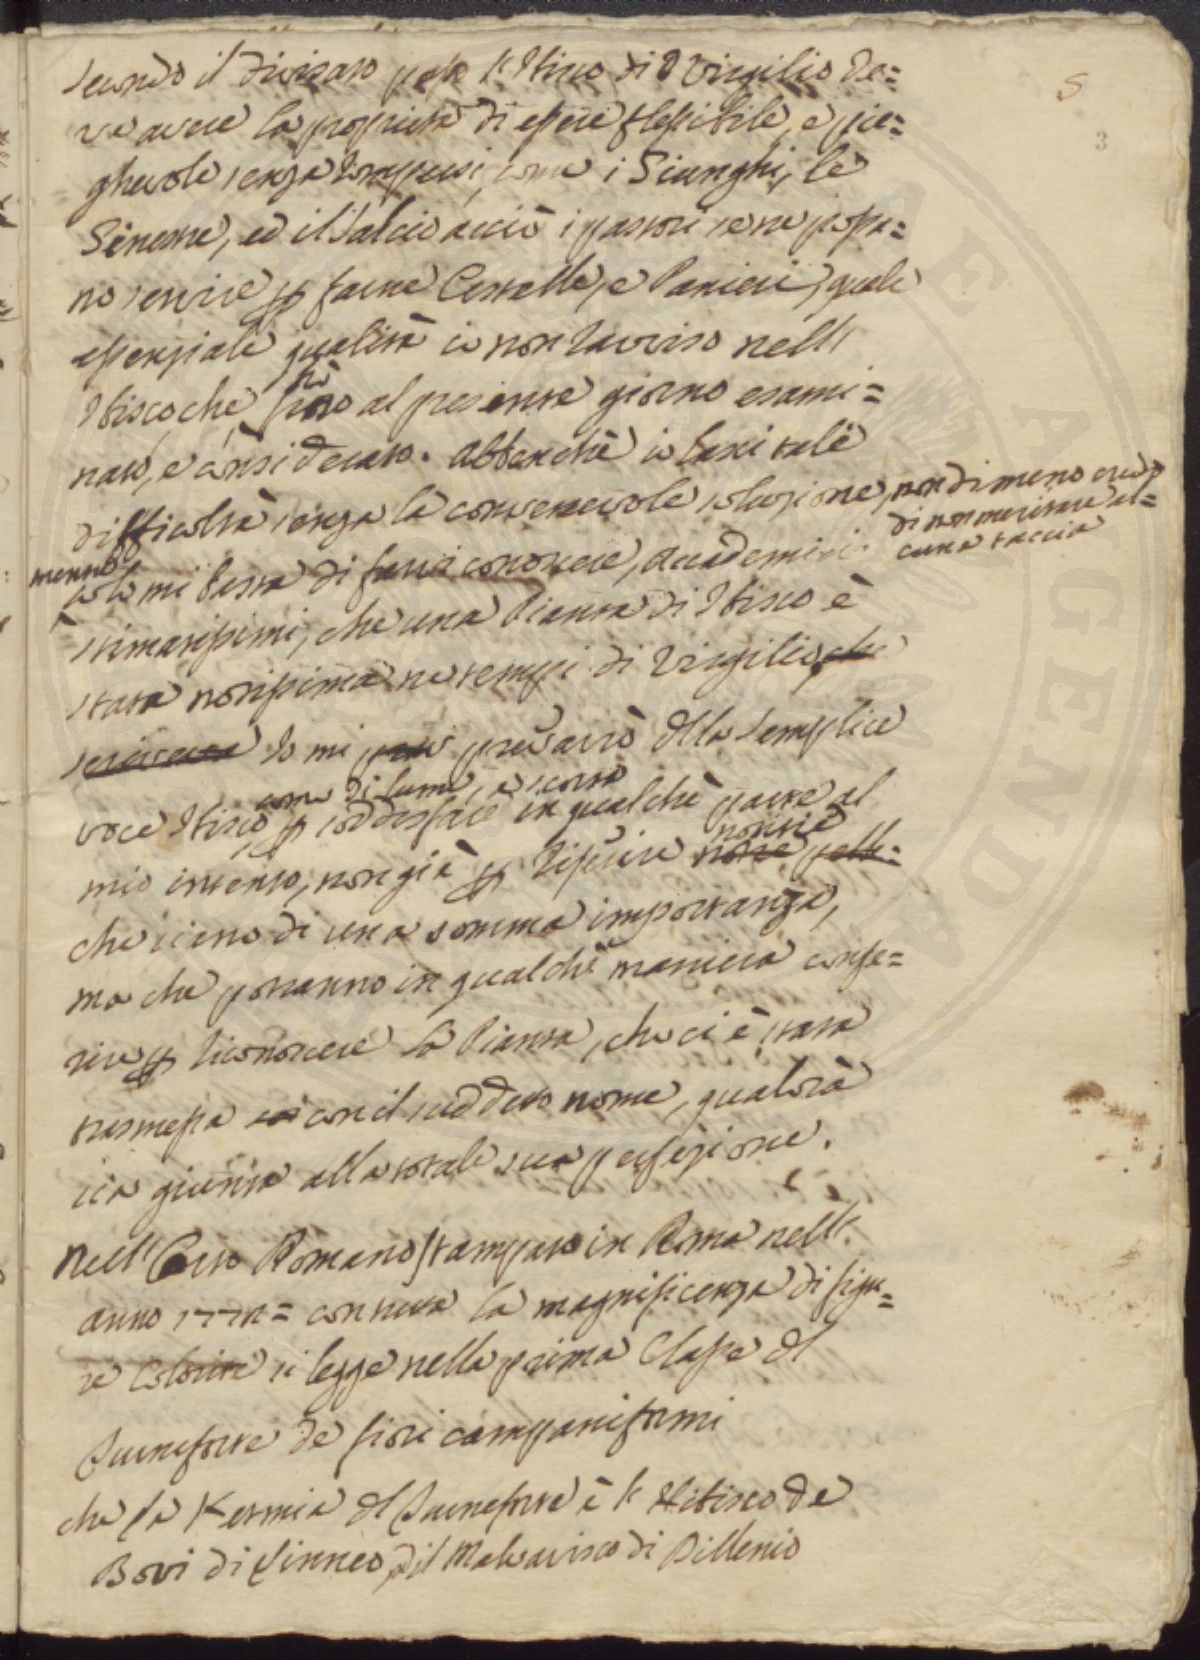 5
3
secondo il divisato però l'Ibisco di Virgilio de=
ve avere la proprietà di essere flessibile, e pie=
ghevole senza rompersi, come i Giunghi, le
Ginestre, ed il Salcio acciò i pastori se ne possa=
no servire p farne Cestelle, e Panieri, quale
essenziale qualità io non ravviso nell'
Ibisco che fin al presente giorno esami=
nato, e considerato. Abbenchè io lasci tale
difficoltà senza la convenevole soluzione, nondimeno credo
di non meritare al=
cuna taccia
mentre
solo mi basta di farvi conoscere, Accademici
stimatissimi, che una Pianta di Ibisco è
stata notissima ne tempi di Virgilio, che
Io mi prevarrò della semplice
come di lume, e scorta
voce Ibisco, p soddisfare in qualche parte al
notizie
mio intento, non già p riferire pelle=
che sieno di una somma importanza,
ma che potranno in qualche maniera confe=
rire p riconoscere la Pianta, che ci è stata
trasmessa con il suddetto nome, qualora
sia giunta alla totale sua perfezione.
Nell'Orto Romano stampato in Roma nell'
anno 1772= con nuova la magnificenza di figu=
re Colorite si legge nella prima Classe del
Turnefort de fiori campaniformi
che la Kermia del Turnefort è l'Hibisco de
Bovi di Linneo, ed il Malvavisco di Dillenio